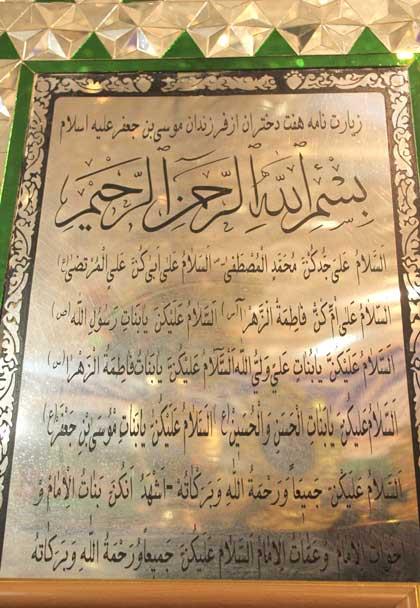 زیارت نامه هفت دختران از فرزندان موسی بن جعفر علیه اسلام
بِسْمِ اللهِ الرَّحمنِ الرَّحیمِ
اَلسَّلامُ عَلی جَدِّکُنَّ مُحَمَّدٍ الْمُصْطَفی (ص) اَلسَّلامُ عَلی اَبی کُنَّ عَلیِ الْمُرتَضی (ع)
اَلسَّلامُ عَلی اُمِّ کُنَّ فاطِمَةُ الزَّهرا (س) اَلسَّلامُ عَلَیْکُنَّ یا بَناتِ رَسُولِ الله (ص)
اَلسَّلامُ عَلَیکُنَّ یا بَناتِ عَلیٍ وَلیُّ الله اَلسَّلامُ عَلَیْکُنَّ یا بَناتُ فاطِمَةُ الزَّهرا (س)
اَلسَّلامُ عَلَیکُنَّ یا بَناتِ الْحَسَنِ وَ الْحُسَیْنِ (ع) اَلسَّلامُ عَلَیْکُنَّ یا بَناتِ مُوسَی بْنِ جَعْفَر (ع)
اَلسَّلامُ عَلَیْکُنَّ جَمیعاً وَ رَحْمَةُ اللهِ وَ بَرَکاتُهُ - اَشْهَدُ اَنَّکُنَّ بَناتُ الْاِمامُ وَ
اَخَواتُ الاِمامُ وَ عَمّاتُ الاِمامُ اَلسَّلامُ عَلَیْکُنَّ جَمیعاً وَ رَحْمَةُ اللهِ وَ بَرَکاتُهُ